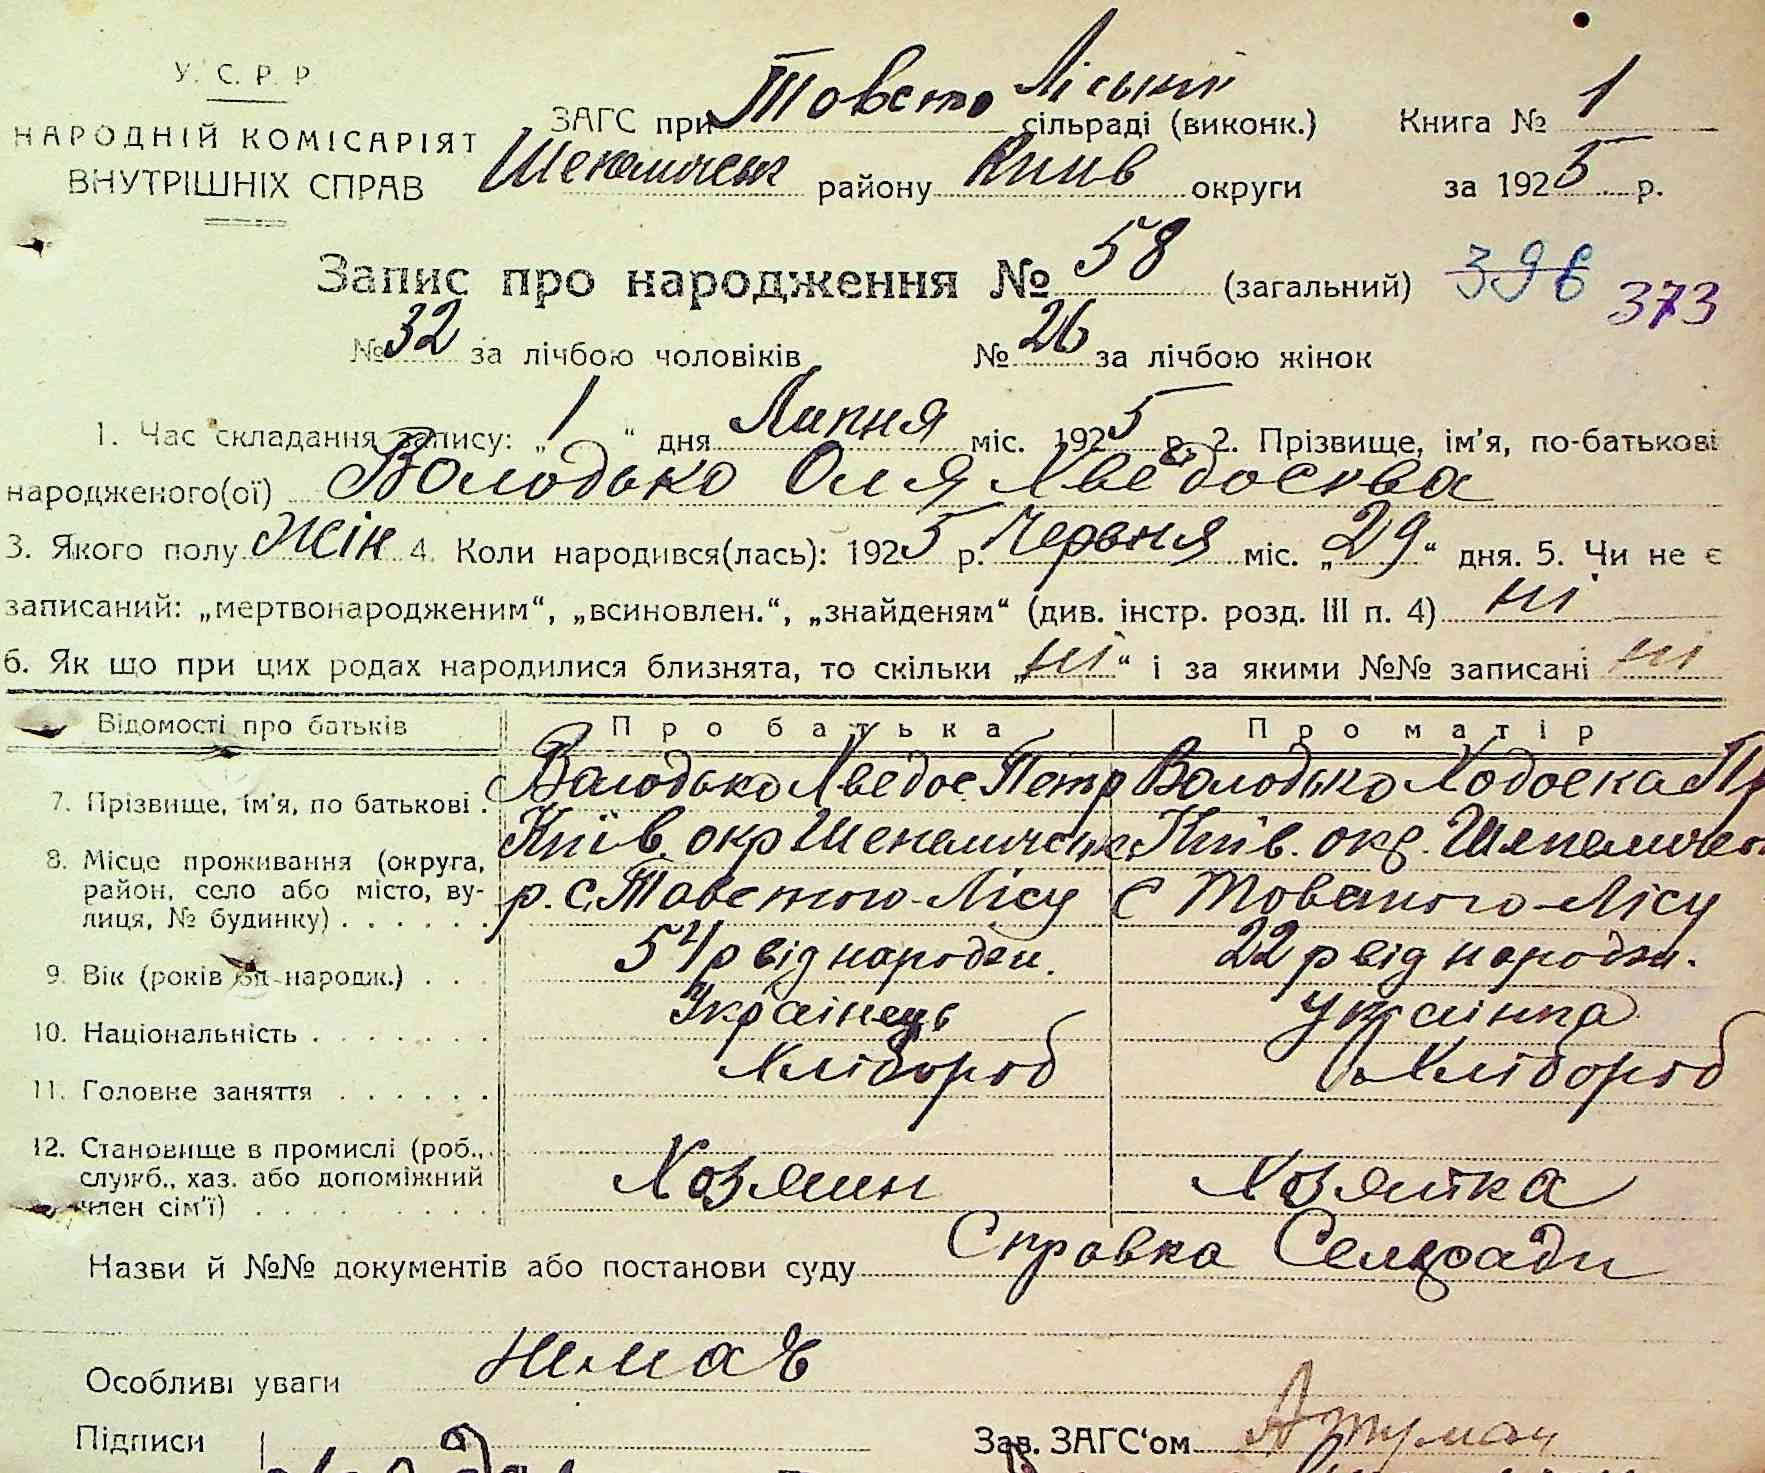 У. С. Р. Р
НАРОДНІЙ КОМІСАРІЯТ
ВНУТРІШНІХ СПРАВ
ЗАГС при Товсто Ліській сільраді (виконк.)
Книга № 1
району Київ округи
за 1925 р.
Запис про народження № 58 (загальний) 396 373
№ 32 за лічбою чоловіків № 26 за лічбою жінок
1. Час складання запису: „1“ дня Липня міс. 1925 р. 2. Прізвище, ім'я, по-батькові
народженого(ої) Володько Оля
3. Якого полу жін 4. Коли народився(лась): 1925 р. Червня міс. „29“ дня. 5. Чи не є
записаний: „мертвонародженим“, „всиновлен.“, „знайденям“ (див. інстр. розд. III п. 4) ні
6. Як що при цих родах народилися близнята, то скільки „ні“ і за якими №№ записані ні
Відомості про батьків Про батька Про матір
7. Прізвище, ім'я, по батькові . Володько Хведос Петр Володько Ходоска
8. Місце проживання (округа, Київ. окр Київ. окр.
район, село або місто, ву- р. с. Товстого-Лісу с Товстого-Лісу
лиця, № будинку) . . . . . .
9. Вік (років від народж.) . . . 54 р від народж. 22 р від народж.
10. Національність . . . . . . . Українець Українка
11. Головне заняття . . . . . . Хлібороб Хлібороб
12. Становище в промислі (роб.,
служб., хаз. або допоміжний Хозяин Хозяйка
член сім'ї) . . . . . . . . .
Назви й №№ документів або постанови суду Справка Сельради
Особливі уваги Нимаѣ
Підписи
Зав. ЗАГС'ом